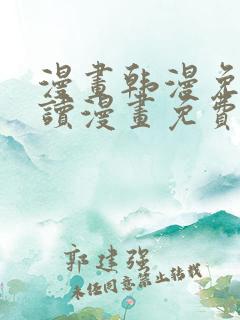 漫畫韩漫免
讀漫畫免費
郭建强
未经同意禁止转载